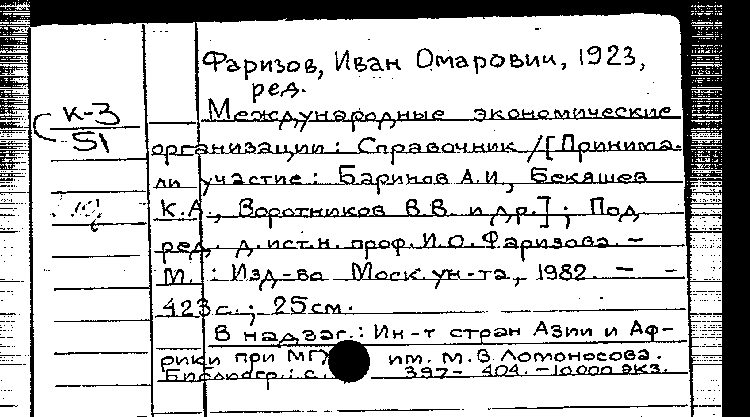 Фаризов, Иван Омарович, 1923,
ред.
К-3
51
Международные экономические
организации: Справочник /[Принима-
ли участие: Баринов А.И., Бекяшев
К.А., Воротников В.В. и др.]; Под
ред. д.ист.н. проф. И.О. Фаризова. –
М.: Изд-во Моск. ун-та, 1982. – -
423с.; 25см.
В надзаг.: Ин-т стран Азии и Аф-
рики при МГУ им. М.В. Ломоносова.
Библиогр.: с. 397- 404. –10000 экз.